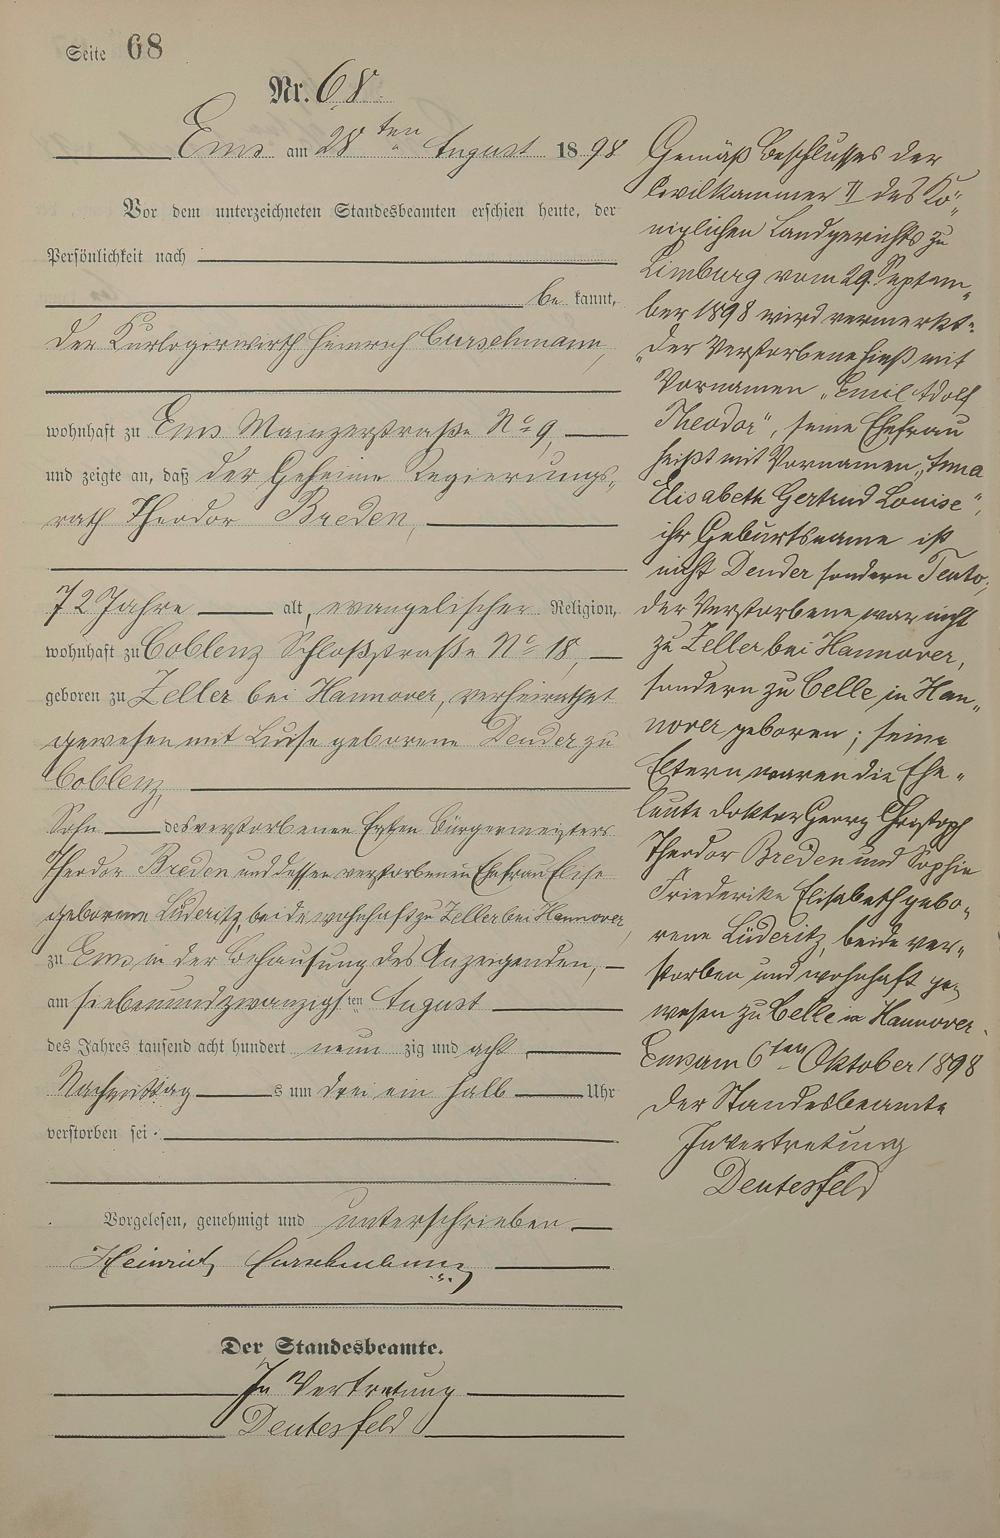 Seite 68
Nr. 68.
Ems am 28ten August 1898
Vor dem unterzeichneten Standesbeamten erschien heute, der
Persönlichkeit nach
be kannt,
der Kurlogerwirth Heinrich Curschmann,
wohnhaft zu Ems Mainzerstraße No 9,
und zeigte an, daß der Geheime Regierungs-
rath Theodor Breden,
72 Jahre alt, evangelischer Religion,
wohnhaft zu Coblenz Schloßstraße No 18,
geboren zu Zeller bei Hannover, verheirathet
gewesen mit Luise geborene Dender zu
Coblenz,
Sohn des verstorbenen Ersten Bürgermeisters
Theodor Breden und dessen verstorbenen Ehefrau Elise
geborene Lüderitz, beide wohnhaft zu Zeller bei Hannover,
zu Ems in der Behausung des Anzeigenden,
am siebenundzwanzigsten August
des Jahres tausend acht hundert neun zig und acht
Nachmittag s um drei ein halb Uhr
verstorben sei.
Vorgelesen, genehmigt und unterschrieben
Heinrich Curschmann
Der Standesbeamte.
In Vertretung
Deutesfeld
Gemäß Beschlusses der
Civilkammer II des Kö-
niglichen Landgerichts zu
Limburg vom 29. Septem-
ber 1898 wird vermerkt:
"Der Verstorbene hieß mit
Vornamen "Emil Adolf
Theodor", seine Ehefrau
heißt mit Vornamen "Anna
Elisabeth Gertrud Louise",
ihr Geburtsname ist
nicht Dender sondern Tento;
der Verstorbene war nicht
zu Zeller bei Hannover,
sondern zu Celle in Han-
nover geboren; seine
Eltern waren die Ehe-
leute Doktor Georg Christoph
Theodor Breden und Sophie
Friederike Elisabeth gebo-
rene Lüderitz, beide ver-
storben und wohnhaft ge-
wesen zu Celle in Hannover.
Ems am 6ten Oktober 1898
Der Standesbeamte
In Vertretung
Deutesfeld